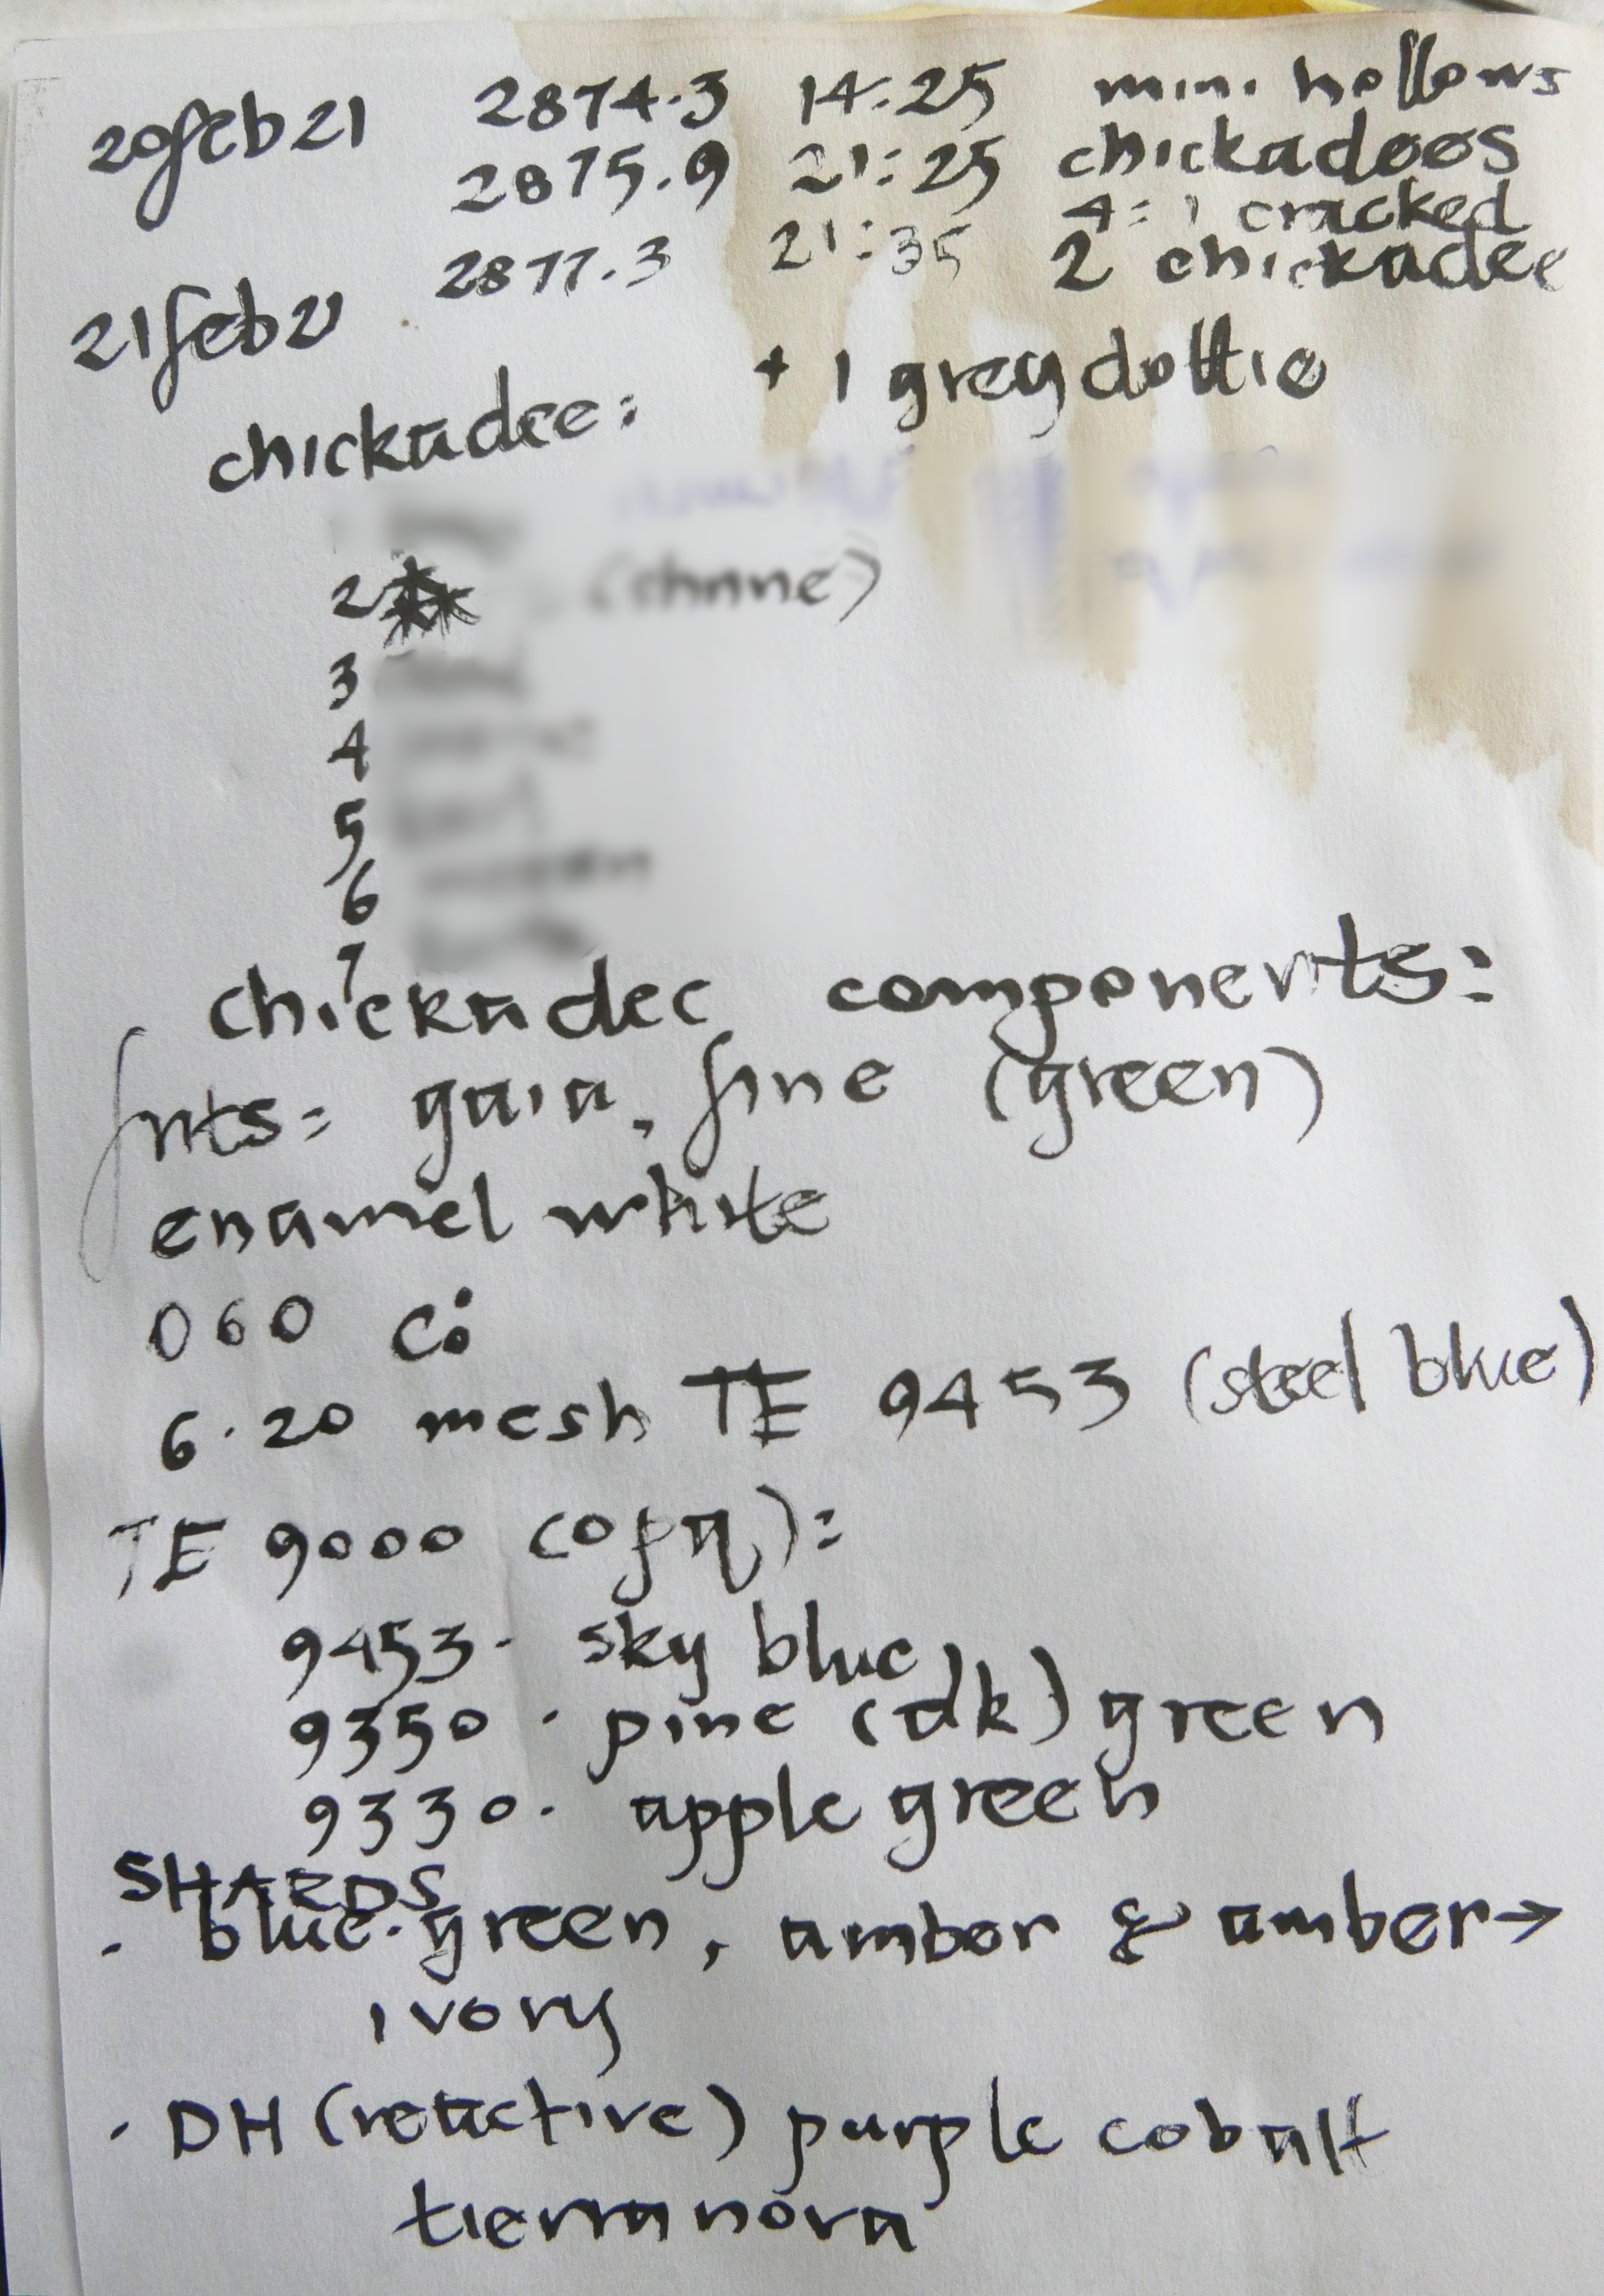 20feb21 2874.3 14:25 mini hollows
2875.9 21:25 chickadees
4=1 cracked
21feb21 2877.3 21:35 2 chickadee
+ 1 grey dottie
chickadee:
2
3
4
5
6
7
chickadee components:
frits= gaia, fine (green)
enamel white
060 Ci
6.20 mesh TE 9453 (steel blue)
TE 9000 (opq):
9453. sky blue
9350. pine (dk) green
9330. apple green
SHARDS
. blue.green, amber & amber→
ivory
. DH (reactive) purple cobalt
tierra nova